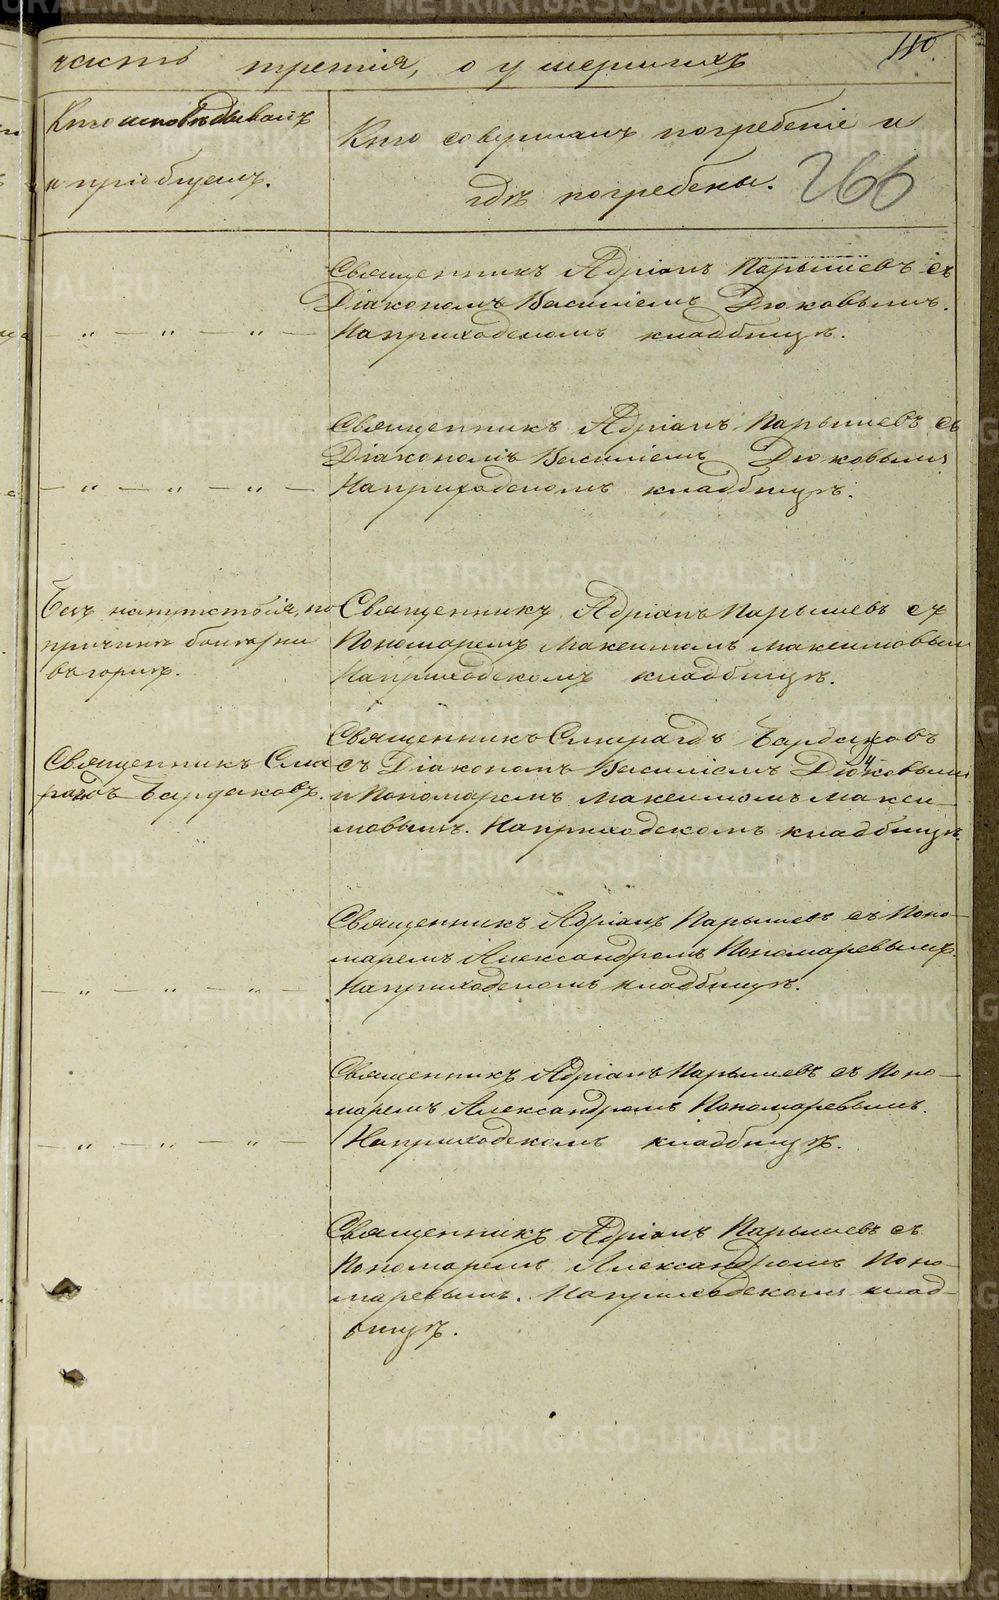 110.
часть третія, о умершихъ
Кто исповѣдывалъ
и пріобщалъ.
Кто совершалъ погребеніе и
гдѣ погребены.
266
Священникъ Адріанъ Парышевъ съ
Діакономъ Василіемъ Дюковымъ.
На приходскомъ кладбищѣ.
— „ — „ — „ —
Священникъ Адріанъ Парышевъ съ
Діакономъ Василіемъ Дюковымъ
На приходскомъ кладбищѣ.
— „ — „ — „ —
Безъ напутствія, по
причинѣ
Священникъ Адріанъ Парышевъ съ
Пономаремъ Максимомъ Максимовым
На приходскомъ кладбищѣ.
Священникъ Сма
рагдъ Бардаковъ.
Священникъ Смарагдъ Бардаковъ
съ Діакономъ Василіемъ Дюковымъ
и Пономаремъ Максимомъ Макси-
мовымъ. На приходскомъ кладбищѣ.
Священникъ Адріанъ Парышевъ съ Поно-
маремъ Александромъ Пономаревымъ.
На приходскомъ кладбищѣ.
— „ — „ — „ —
Священникъ Адріанъ Парышевъ съ Поно-
маремъ Александромъ Пономаревымъ.
На приходскомъ кладбищѣ.
— „ — „ — „ —
Священникъ Адріанъ Парышевъ съ
Пономаремъ Александромъ Поно-
маревымъ. На приходскомъ клад-
бищѣ.
METRIKI.GASO-URAL.RU